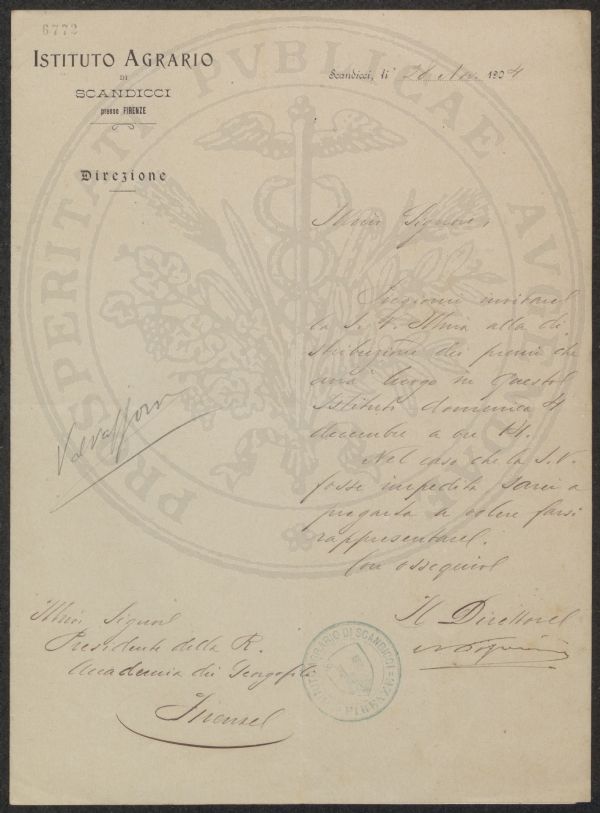 6772
ISTITUTO AGRARIO
DI
SCANDICCI
presso FIRENZE
Direzione
Scandicci, li 26 Nov. 1904
Illmo Signore,
Pregiomi invitare
la S. V. Illma alla di
stribuzione dei premi che
avrà luogo in questo
Istituto domenica 4
decembre a ore 14.
Nel caso che la S. V.
fosse impedita sarei a
pregarla a volere farsi
rappresentare.
Con ossequio
Il Direttore
Valvassori
Illmo Signor
Presidente della R.
Accademia dei Georgofili
Firenze
ISTITUTO AGRARIO DI SCANDICCI
FIRENZE
PROSPERITATI PVBLICAE AVGENDAE